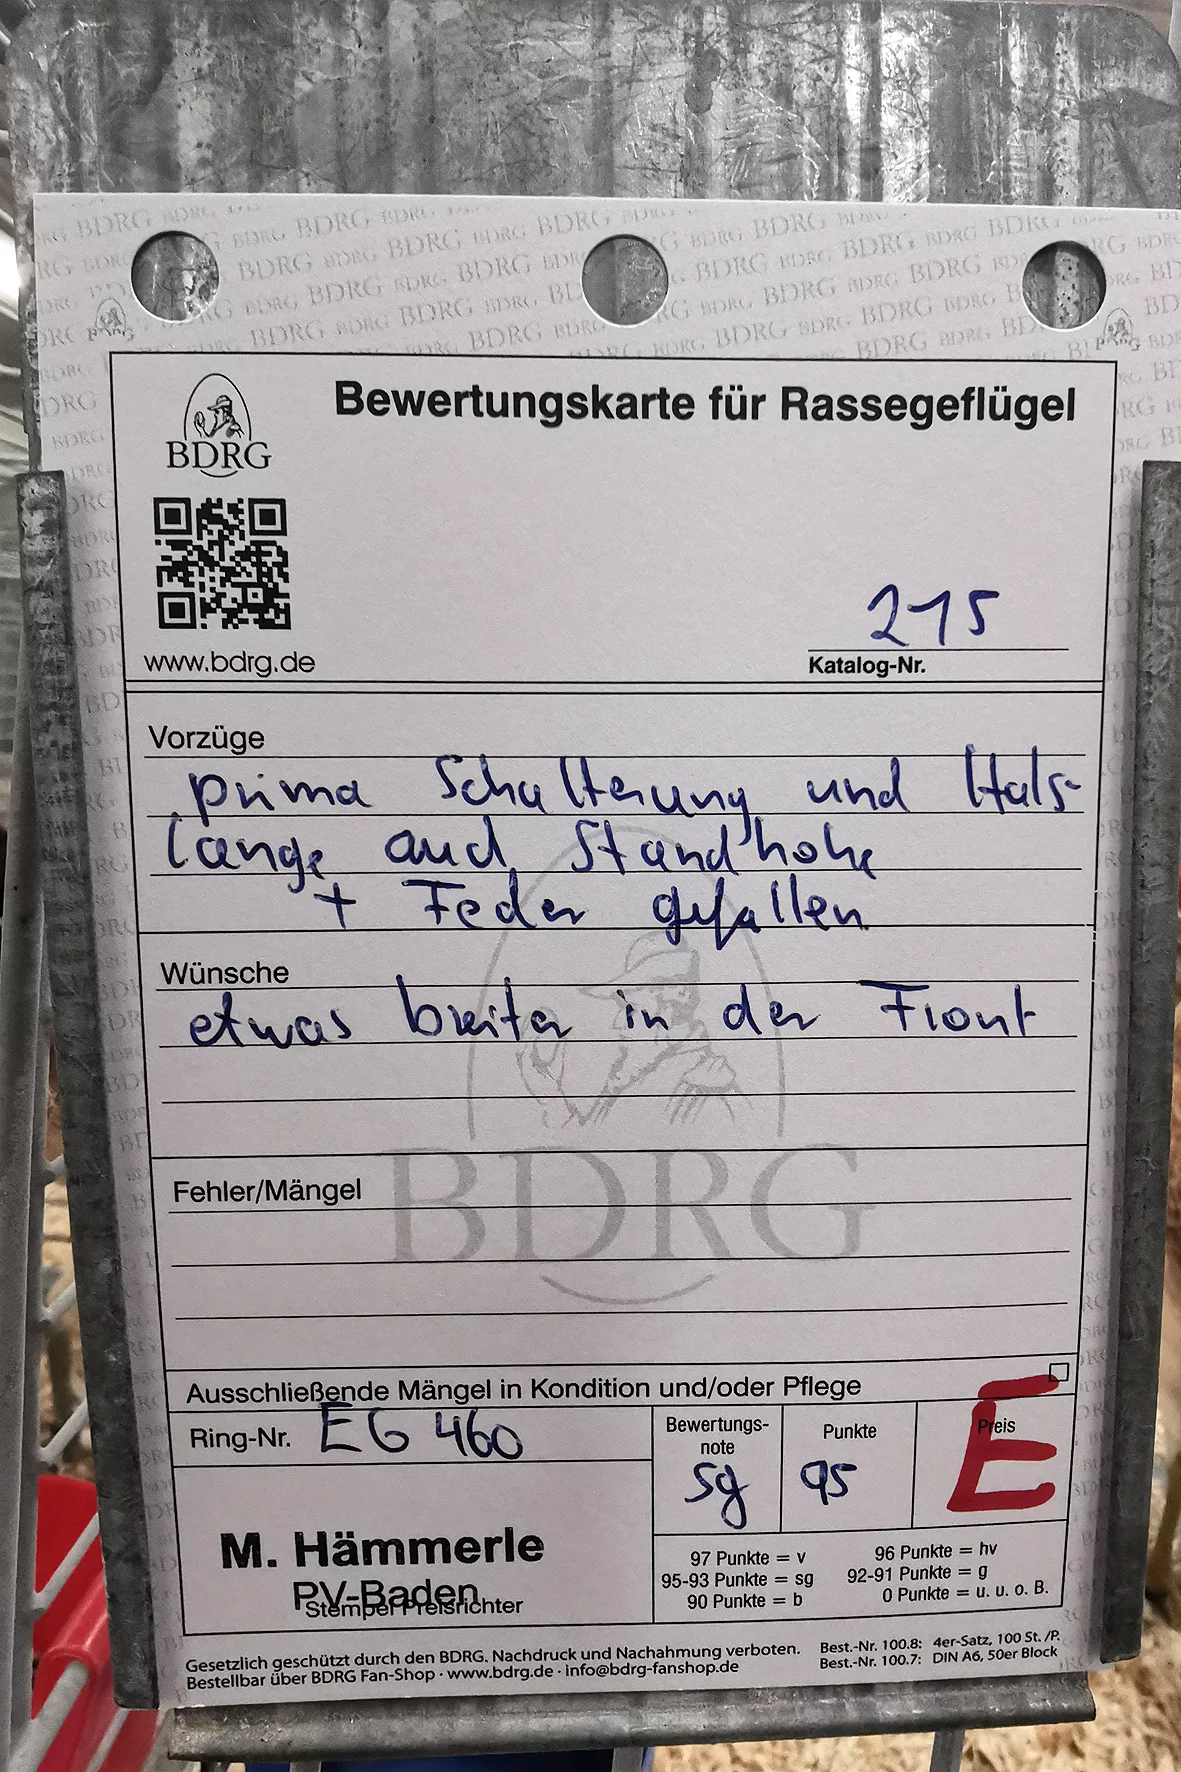 BDRG
Bewertungskarte für Rassegeflügel
www.bdrg.de
215
Katalog-Nr.
Vorzüge
prima Schulterung und Hals-
länge auch Standhöhe
+ Feder gefallen
Wünsche
etwas breiter in der Front
BDRG
Fehler/Mängel
Ausschließende Mängel in Kondition und/oder Pflege
Ring-Nr. EG 460
Bewertungs-
note
sg
Punkte
95
Preis
E
M. Hämmerle
PV-Baden
Stempel Preisrichter
97 Punkte = v
96 Punkte = hv
95-93 Punkte = sg
92-91 Punkte = g
90 Punkte = b
0 Punkte = u. u. o. B.
Gesetzlich geschützt durch den BDRG. Nachdruck und Nachahmung verboten.
Bestellbar über BDRG Fan-Shop · www.bdrg.de · info@bdrg-fanshop.de
Best.-Nr. 100.8: 4er-Satz, 100 St. /P.
Best.-Nr. 100.7: DIN A6, 50er Block